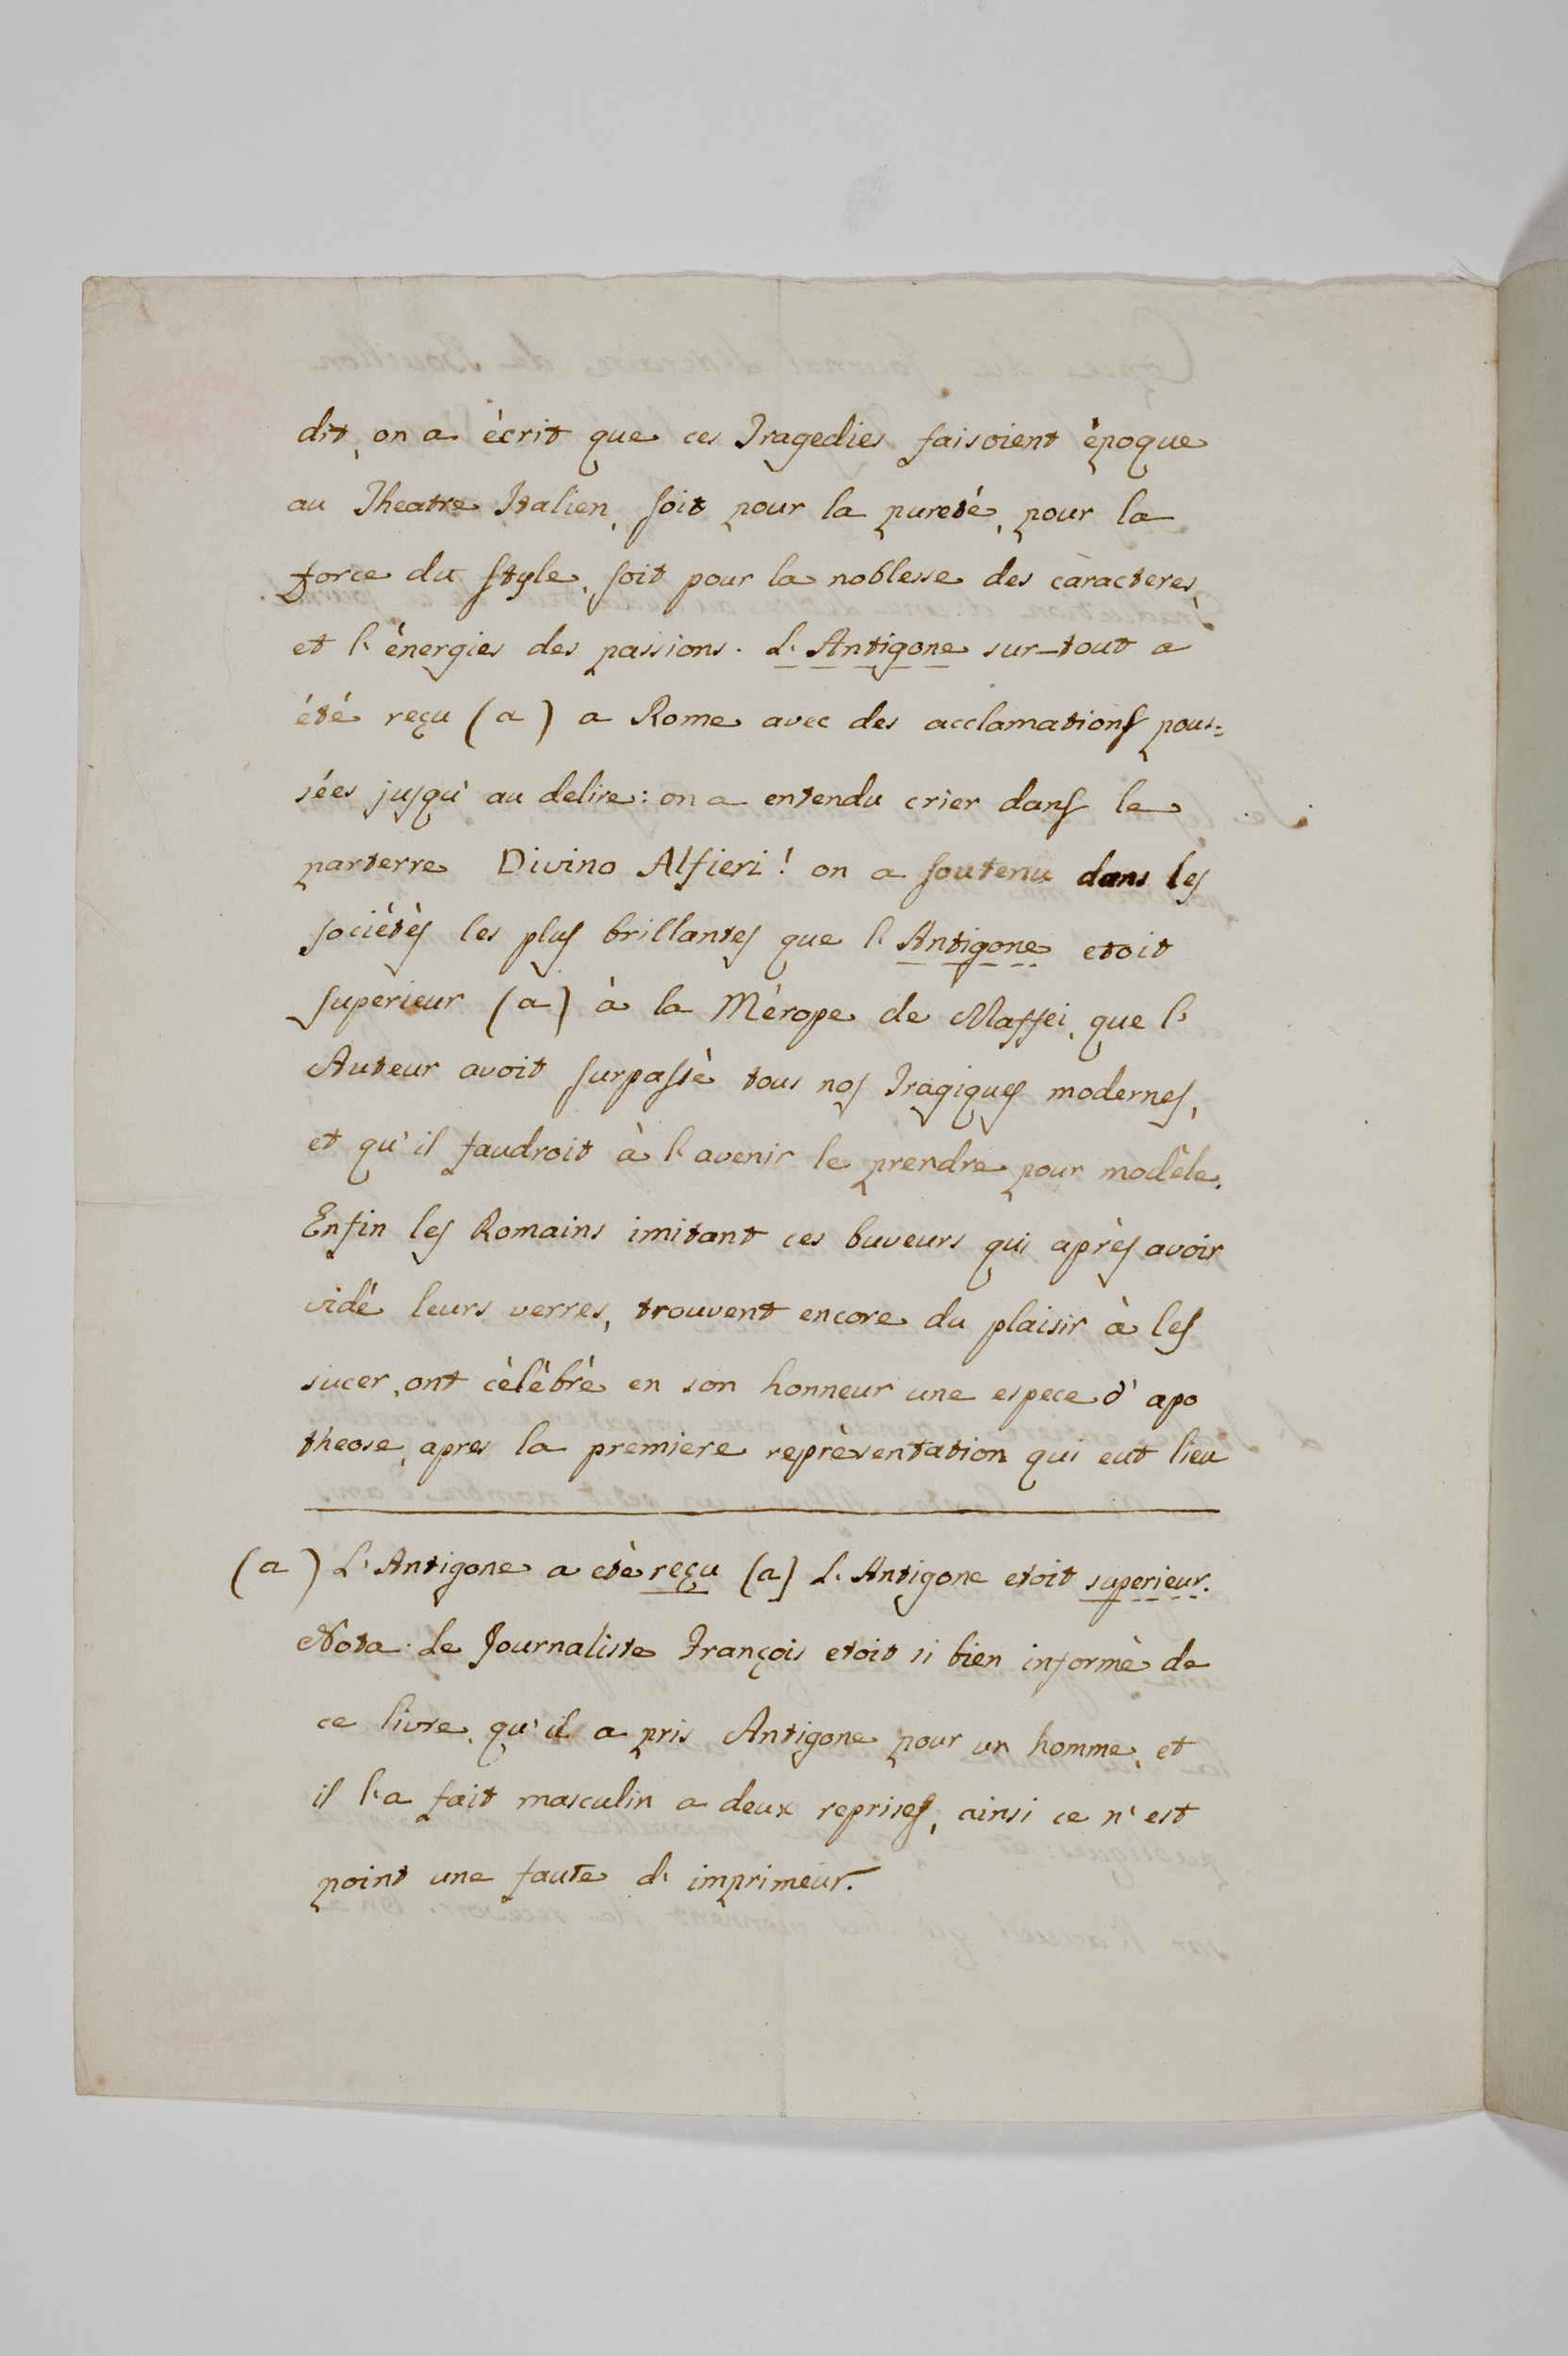 dit, on a ècrit que ces Tragedies faisoient èpoque
au Theatre Italien, soit pour la pureté, pour la
force du style, soit pour la noblesse des càracteres,
et l'ènergies des passions. L'Antigone sur-tout a
été reçu (a) a Rome avec des acclamations pous=
sées jusqu'au delire: on a entendu crier dans le
parterre Divino Alfieri! on a soutenu dans les
sociètès les plus brillantes que l'Antigone etoit
superieur (a) à la Mèrope de Maffei, que l'
Auteur avoit surpassè tous nos Tragiques modernes,
et qu'il faudroit à l'avenir le prendre pour modèle.
Enfin les Romains imitant ces buveurs qui après avoir
vidè leurs verres, trouvent encore du plaisir à les
sucer, ont cèlèbrè en son honneur une espece d'apo
theose, apres la premiere reprèsentation qui eut lieu
(a) L'Antigone a etè reçu (a) L'Antigone etoit superieur.
Nota. Le Journaliste François etoit si bien informè de
ce livre, qu'il a pris Antigone pour un homme, et
il l'a fait masculin a deux reprises, ainsi ce n'est
point une faute d'imprimeur.